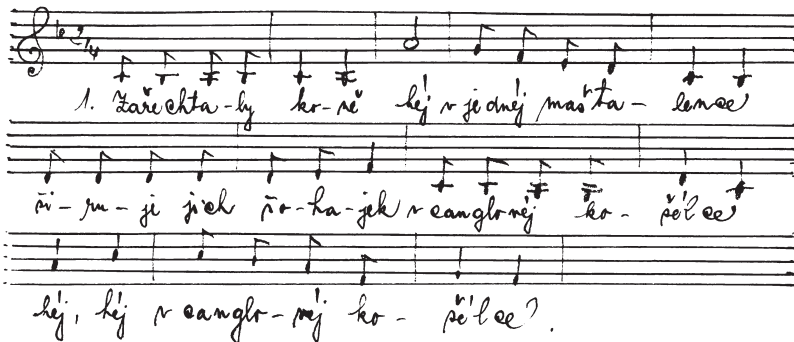 1. Zařechta-ly ko-ně héj v jednéj mašta-lence
ši-ru-je jich šo-ha-jek v canglovéj ko-šélce
héj, héj v canglo-véj ko-šélce.